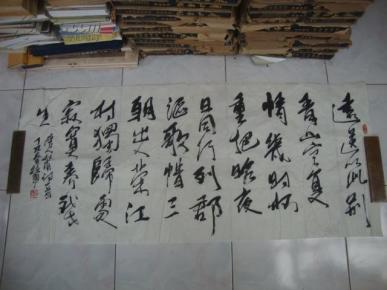 遠送从此别
青山空复
情幾时杯
重把昨夜
月同行列郡
讴歌惜三
朝出入荣江
村獨歸處
寂寞养残
生